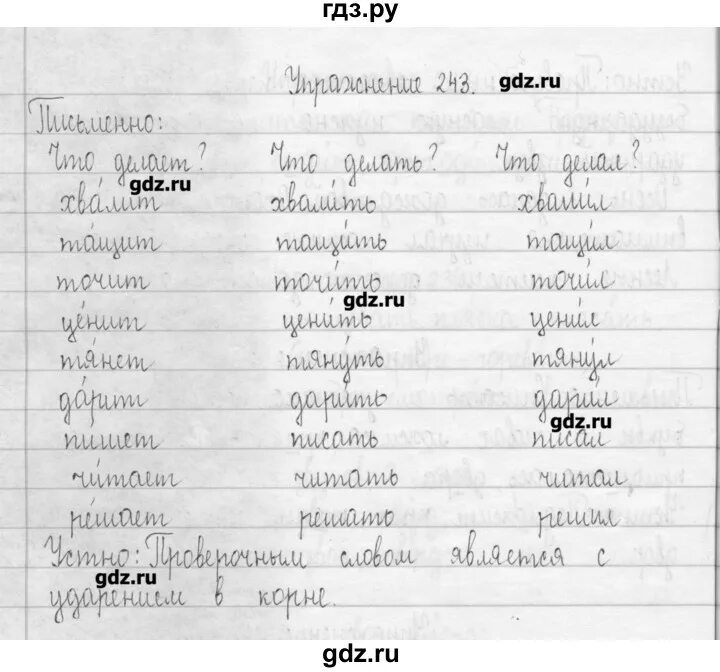 гдз.ру
Упражнение 243. gdz.ru
Письменно:
Что делает? Что делать? Что делал?
gdz.ru
хва́лит хвали́ть хвали́л
та́щит тащи́ть тащи́л
точит точи́ть точи́л
gdz.ru
це́нит цени́ть цени́л
тя́нет тяну́ть тяну́л
да́рит дари́ть дари́л
gdz.ru
пишет писать писал
чи́тает читать читал
ре́шает решать решил
Устно: Проверочным словом является с
gdz.ru
ударением в корне.
gdz.ru